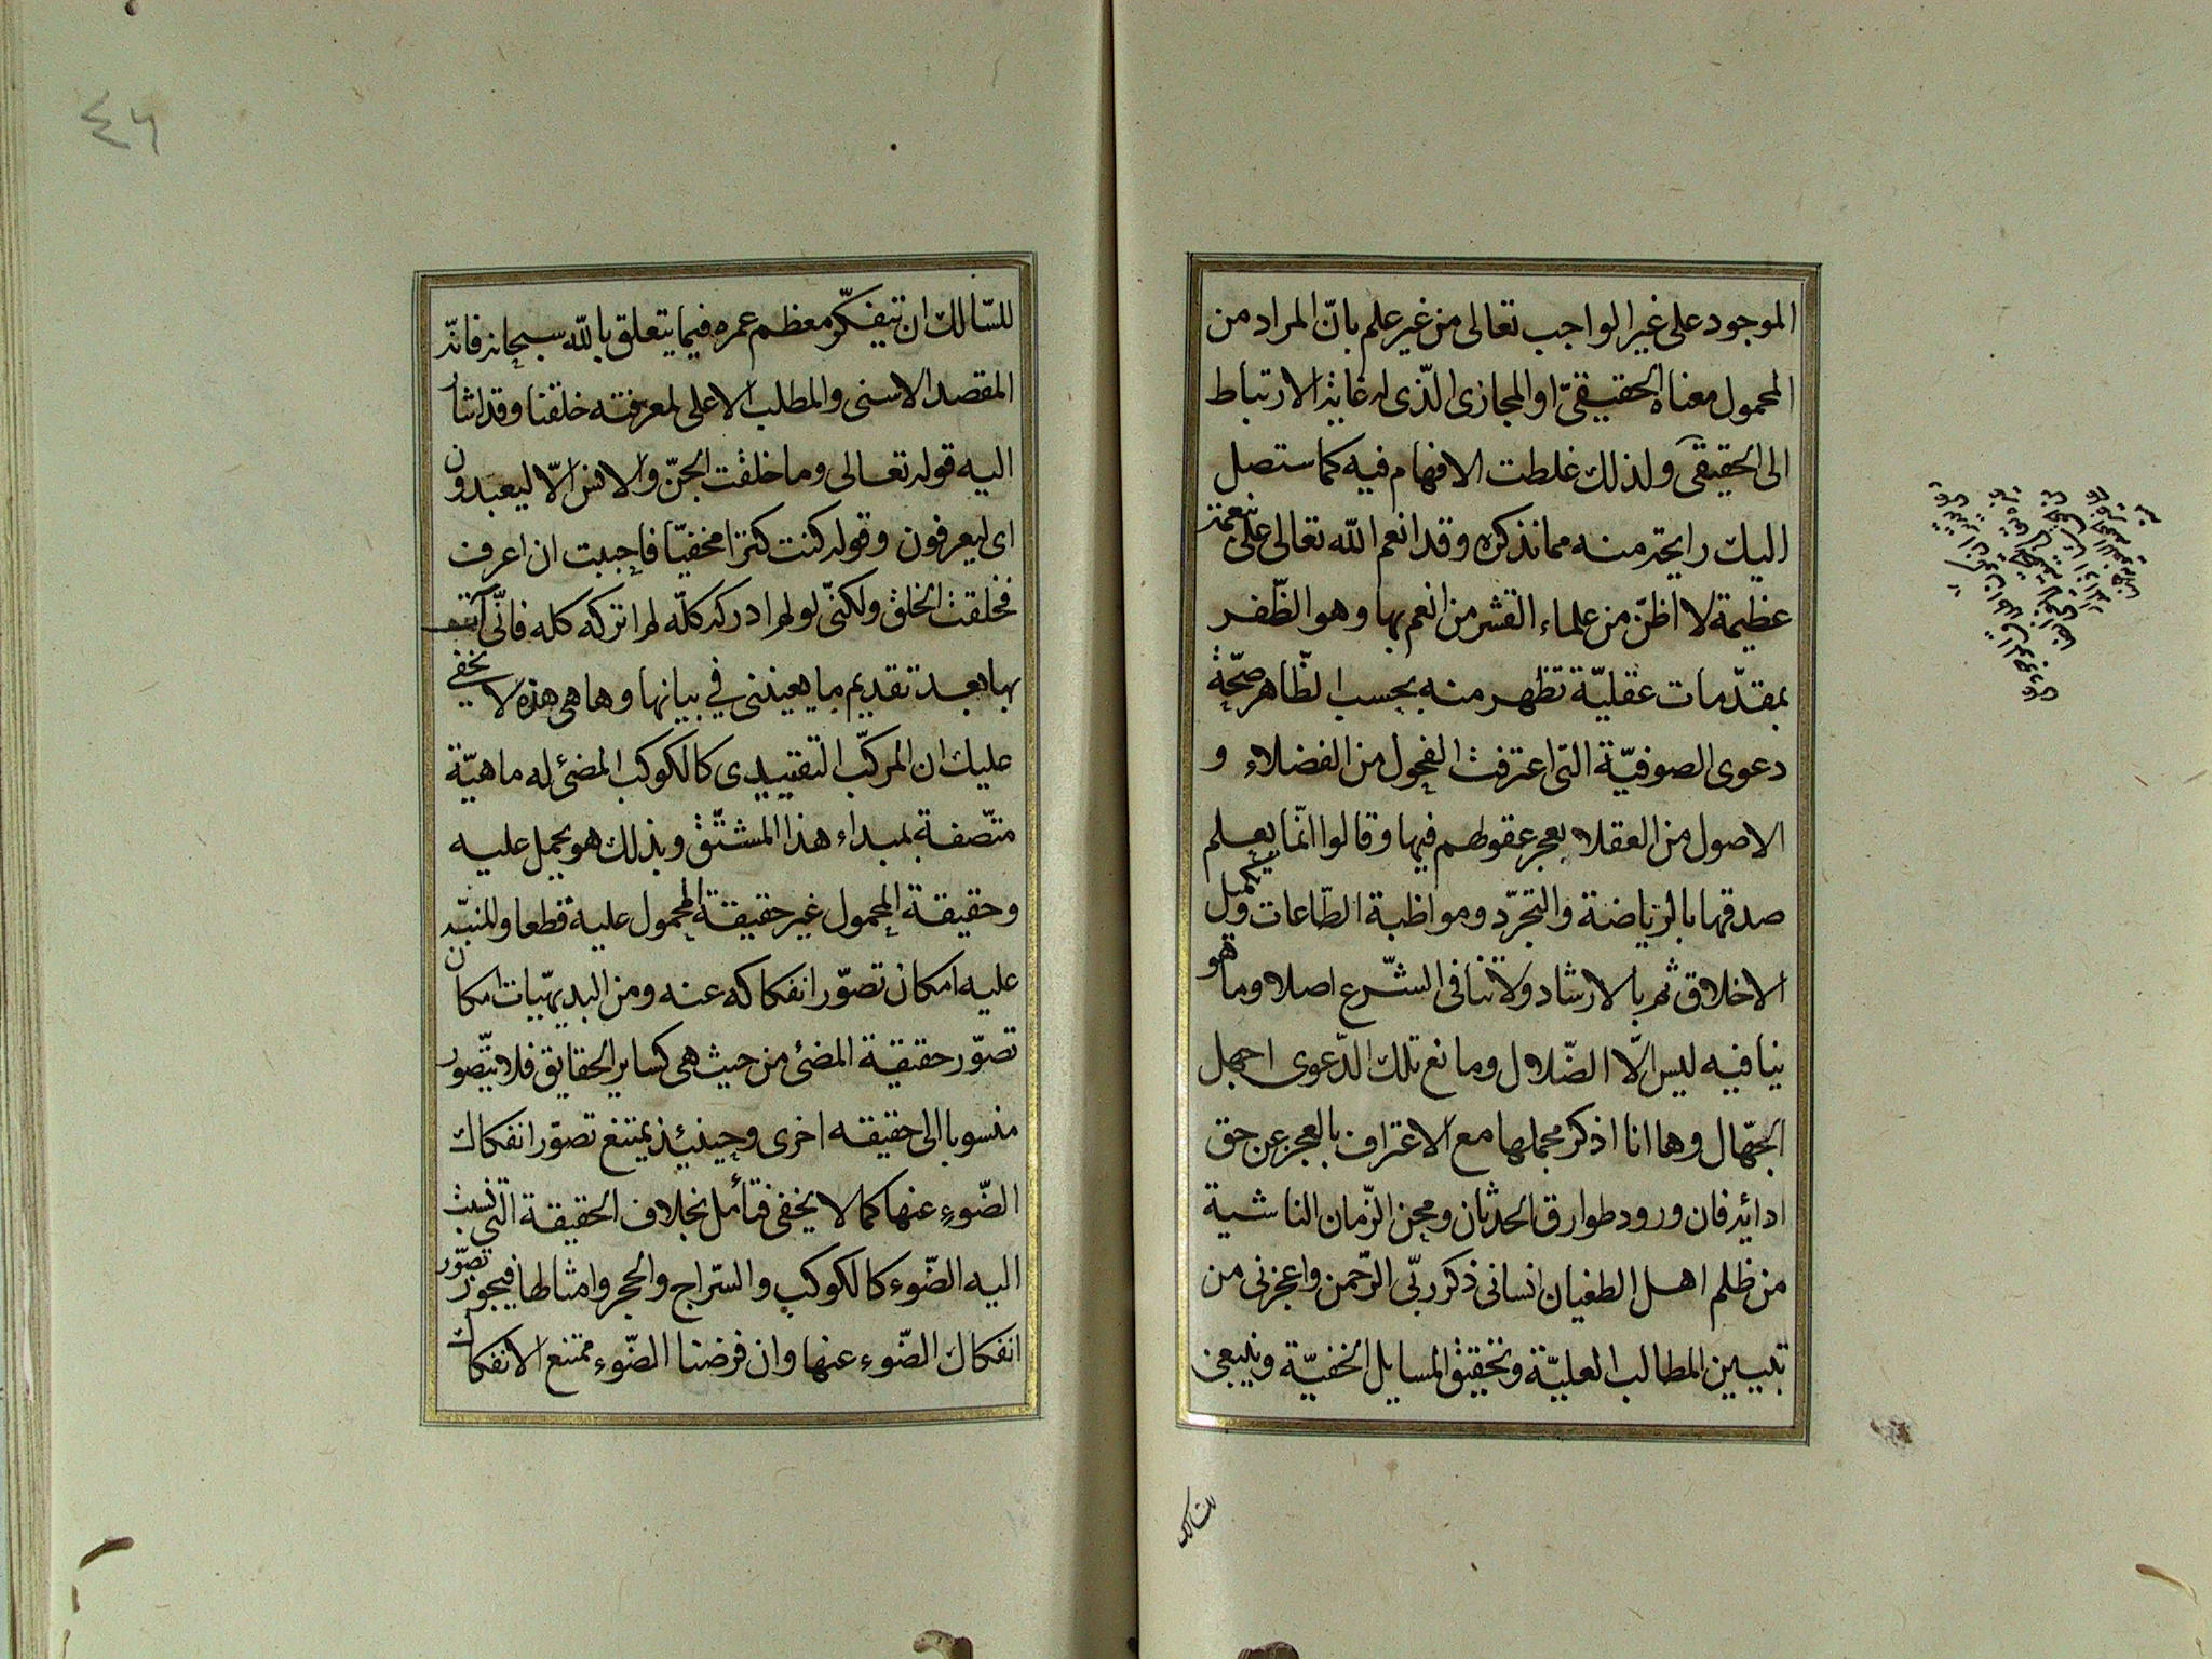 الموجود على غير الواجب تعالى من غير علم بانّ المراد من
المحمول معناه الحقيقىّ او المجازى الّذى له غاية الارتباط
الى الحقيقى ولذلك غلطت الافهام فيه كما ستصل
اليك رايحته منه مما نذكره وقد انعم الله تعالى علىّ بنعمة
عظيمة لا اظنّ من علماء القشر من انعم بها وهو الظّفر
بمقدّمات عقليّة تظهر منه بحسب الظّاهر صحّة
دعوى الصوفيّة التى اعترفت الفحول من الفضلاء و
الاصول من العقلاء بعجز عقولهم فيها وقالوا انّما يعلم
صدقها بالرياضة والتجرّد ومواظبة الطّاعات وتكميل
الاخلاق ثم بالارشاد ولا تنافى الشّرع اصلا وما هو
ينافيه ليس الّا الضّلال ومانع تلك الدّعوى اجهل
الجهّال وها انا اذكر مجملها مع الاعتراف بالعجز عن حق
ادائه فان ورود طوارق الحدثان ومحن الزّمان الناشية
من ظلم اهل الطغيان انسانى ذكر ربّى الرّحمن واعجزنى من
تبيين المطالب العليّة وتحقيق المسايل الخفيّة وينبغى
للسالك
٤٦
للسّالك ان يتفكّر معظم عمره فيما يتعلق بالله سبحانه فانّه
المقصد الاسنى والمطلب الاعلى لمعرفته خلقنا وقد اشار
اليه قوله تعالى وما خلقت الجنّ والانس الّا ليعبدون
اى ليعرفون وقوله كنت كنزا مخفيّا فاحببت ان اعرف
فخلقت الخلق ولكنّى لو لم ادركه كلّه لم اتركه كله فانّى آتيـ
بها بعد تقديم ما يعيننى في بيانها وها هى هذه لا يخفى
عليك ان المركّب التقييدى كالكوكب المضئ له ماهيّة
متّصفة بمبداء هذا المشتّق وبذلك هو يحمل عليه
وحقيقة المحمول غير حقيقة المحمول عليه قطعا والمنبّه
عليه امكان تصوّر انفكاكه عنه ومن البديهيّات امكان
تصوّر حقيقة المضئ من حيث هى كساير الحقايق فلا يتّصور
منسوبا الى حقيقه اخرى وحينئذ يمتنع تصوّر انفكاك
الضّوء عنها كما لا يخفى فتأمل بخلاف الحقيقة التى نسبت
اليه الضّوء كالكوكب والسّراج والحجر وامثالها فيجوز تصوّر
انفكاك الضّوء عنها وان فرضنا الضّوء ممتنع الانفكاك